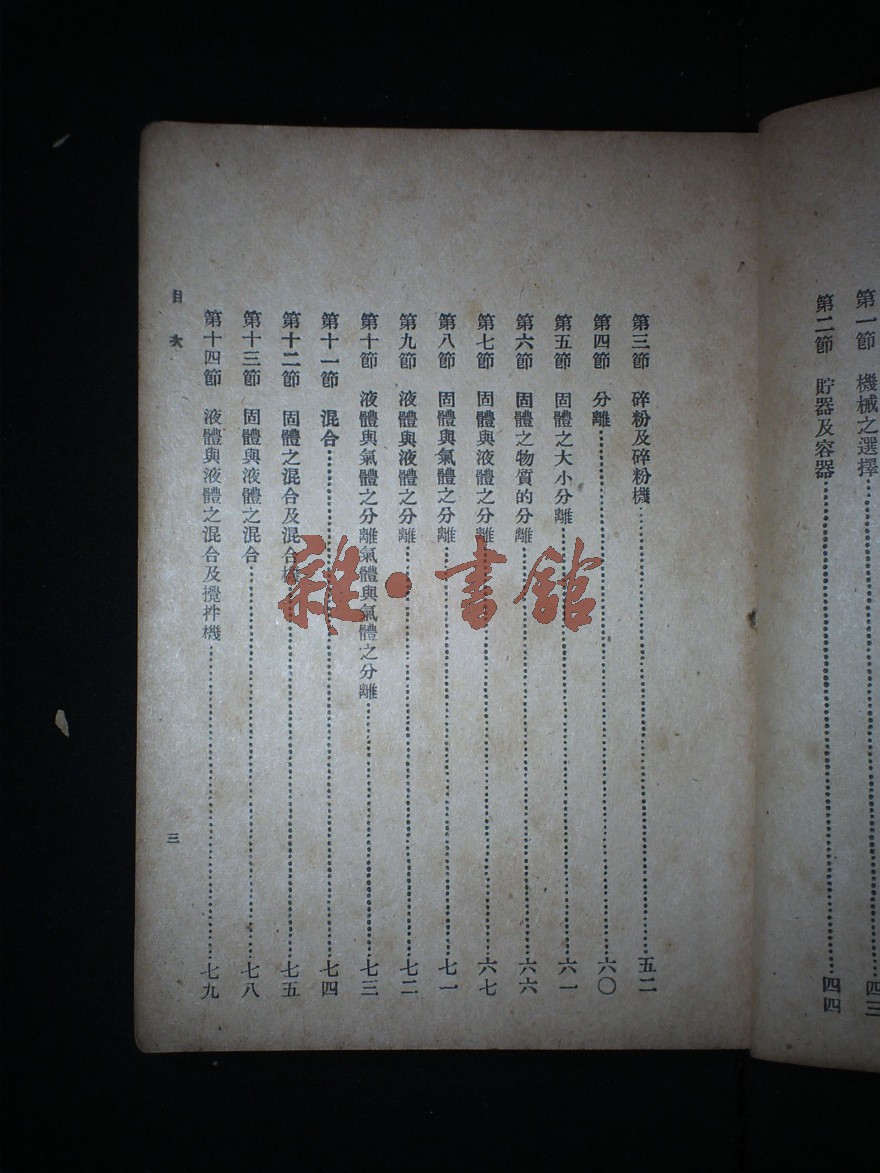 第一節 機械之選擇……四三
第二節 貯器及容器……四四
第三節 碎粉及碎粉機……五二
第四節 分離……六〇
第五節 固體之大小分離……六一
第六節 固體之物質的分離……六六
第七節 固體與液體之分離……六七
第八節 固體與氣體之分離……七一
第九節 液體與液體之分離……七二
第十節 液體與氣體之分離氣體與氣體之分離……七三
第十一節 混合……七四
第十二節 固體之混合及混合機……七五
第十三節 固體與液體之混合……七八
第十四節 液體與液體之混合及攪拌機……七九
目次
三
雜·書館